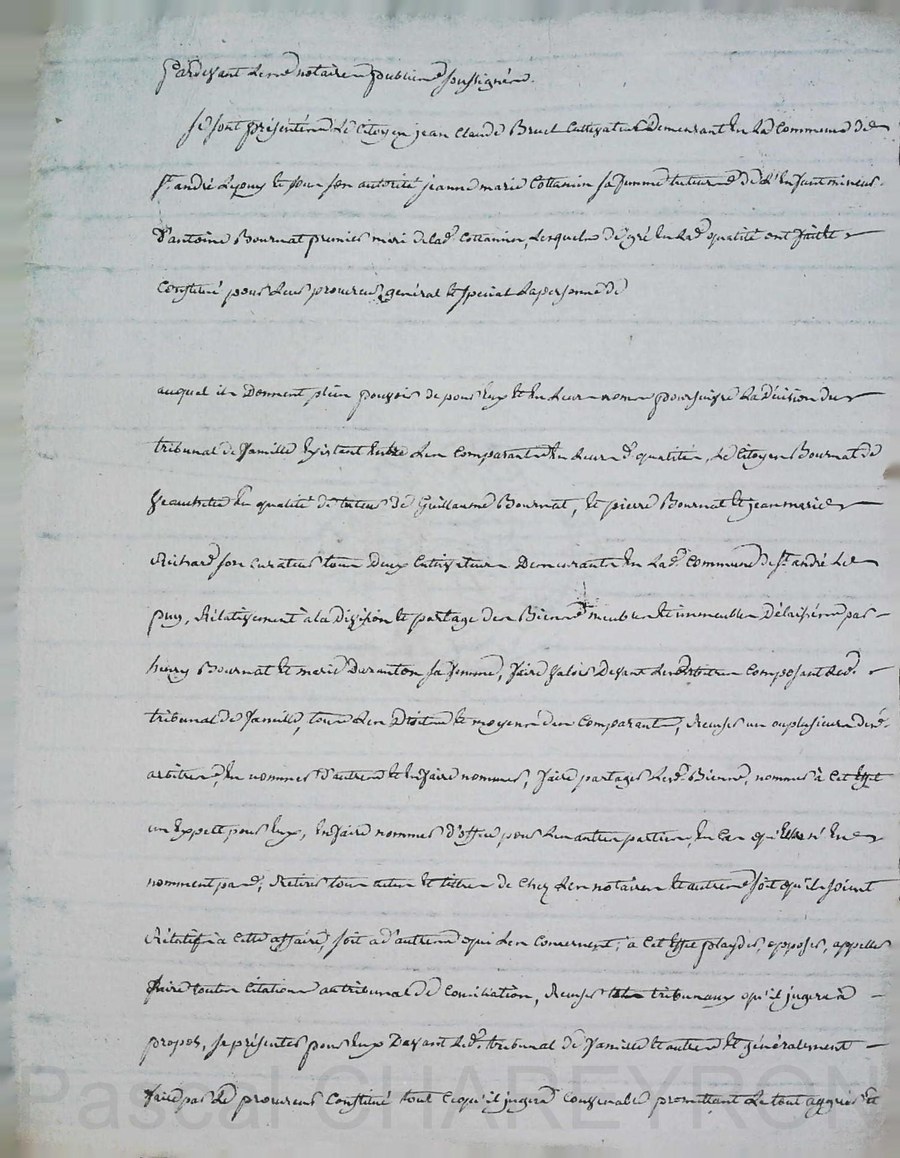 Pardevant les notaires publics soussignés.
se sont présentés le citoyen jean Claude Bruel Cultivateur Demeurant en la Commune de
st. andré Lepuy et sous son autorité jeanne marie Cottancin sa femme tutrice de L'Enfant mineur
D'antoine Bournat premier mari de lad. Cottancin, Lesquels de gré en lad. qualité ont fait et
Constitué pour leur procureur général et spécial la personne de
auquel ils Donnent plein pouvoir de pour Eux et en Leur nom poursuivre La Décision du
tribunal de famille Existant Entre les Comparants En Leurs d. qualités, le Citoyen Bournat de
En qualité de tuteur de Guillaume Bournat, et pierre Bournat et jean marie
Richard son curateur tous Deux Cultivateurs Demeurants En Lad. Commune de st. andré Le
puy, Rélativement à la Division et partage des Biens meubles et immeubles Délaissés par
henry Bournat et marie Duranton sa femme, faire valoir Devant Les arbitres Composant Led.
tribunal de famille, tous Les Droits et moyens des Comparants, Récuser un ou plusieurs des d.
arbitres, En nommer D'autres et En faire nommer, faire partager Lesd. Biens, nommer à Cet Effet
un Expert pour Eux, En faire nommer d'office pour Les autres parties, En Cas qu'Elles n'En
nomment pas, Retirer tous actes et titres de Chez Les notaires et autres soit qu'ils soient
Rélatifs à Cette affaire, soit a d'autres qui Les Concernent, à Cet Effet playder, opposer, appeller
faire toutes Citations au tribunal de Conciliation, Récuser tels tribunaux qu'il jugera à
propos, se présenter pour Eux Devant Led. tribunal de famille et autres et généralement
faire par Le procureur Constitué tout Ce qu'il jugera Convenable promettant Le tout aggréer et
Pascal CHAREYRON